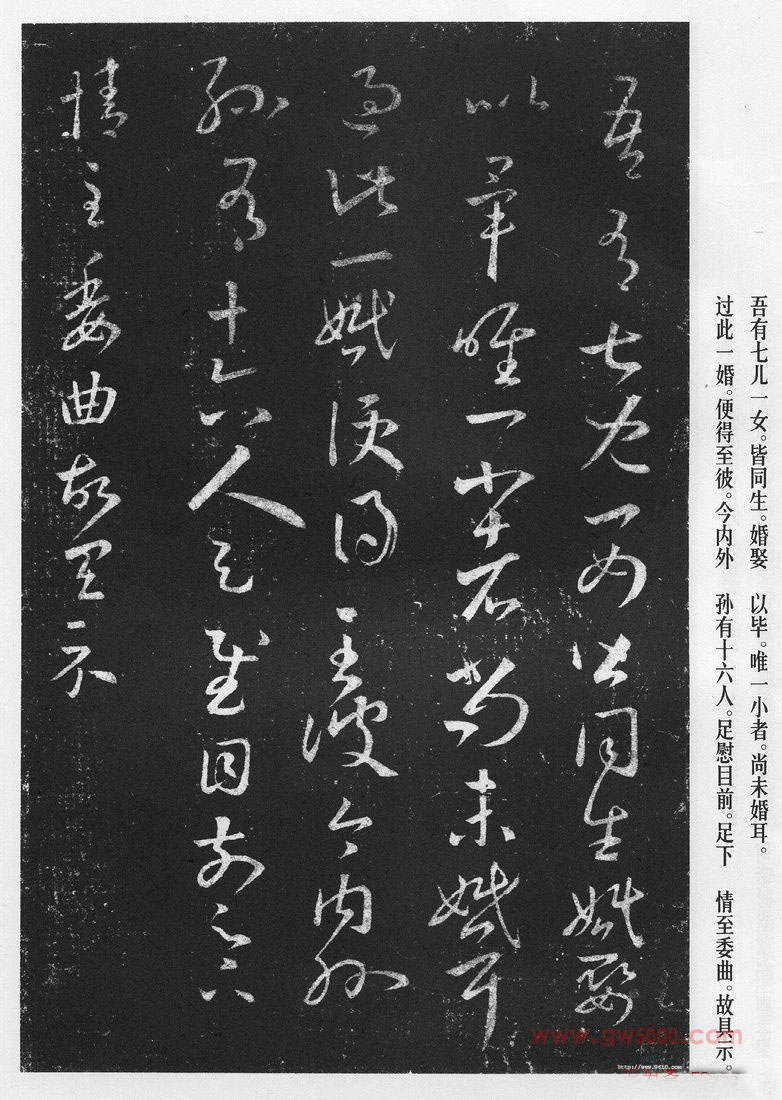 吾有七儿一女皆同生婚娶
以毕唯一小者尚未婚耳
过此一婚便得至彼今内外
孙有十六人足慰目前足下
情至委曲故具示
吾有七儿一女。皆同生。婚娶　以毕。唯一小者。尚未婚耳。
过此一婚。便得至彼。今内外　孙有十六人。足慰目前。足下　情至委曲。故具示。
www.gw5000.com
http://www.9610.com